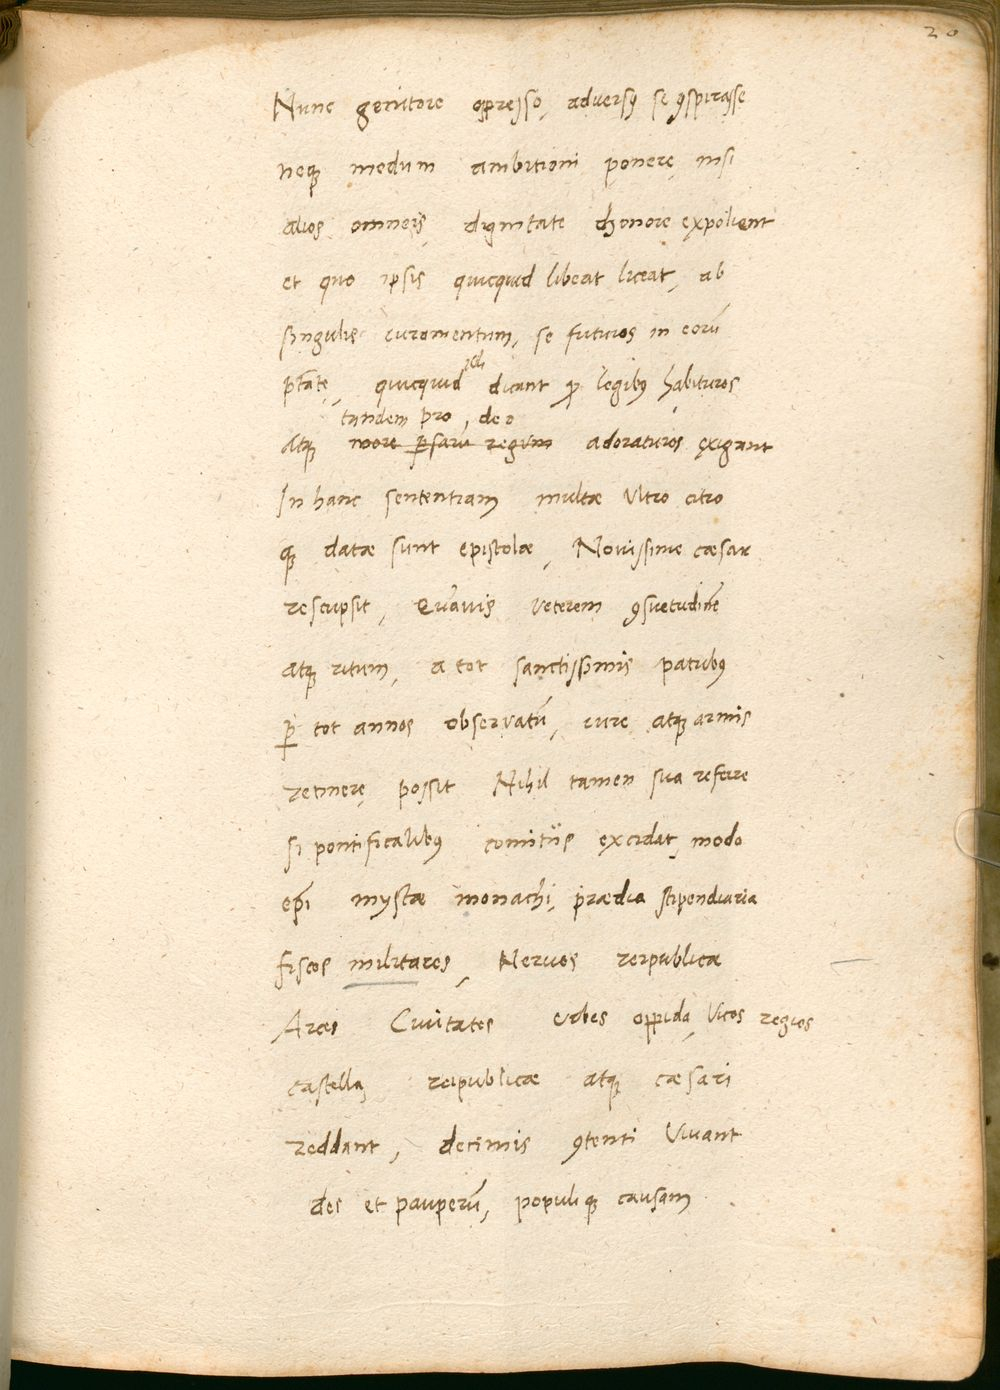 20
Nunc genitore oppresso, adversꝰ se ꝯspirasse
neqꝫ modum ambitioni ponere, nisi
alios omneis, dignitate honore expolient
et quo ipsis quicquid libeat liceat, ab
singulis iuramentum, se futuros in eorū
ptāte, quicquid dicant ꝓ legibꝰ habituros
tandem pro, deo
atqꝫ more ꝑsarū regum adoraturos exigant
In hanc sententiam multæ ultro citro
qꝫ datæ sunt epistolæ, Novissime cæsar
rescripsit, Quāvis veterem ꝯsuetudinē
atqꝫ ritum, a tot sanctissimis patribꝰ
ꝑ tot annos observatū, iure atqꝫ armis
retinere possit Nihil tamen sua referre
si pontificalibꝰ comitiis excidat, modo
epī mystæ monachi, prædia stipendiaria
fiscos militares, Nervos reipublicæ
Arces Civitates Urbes oppida, Vicos regios
castella, reipublicæ atqꝫ cæsari
reddant, decimis ꝯtenti Vivant
des et pauperū, populi qꝫ causam